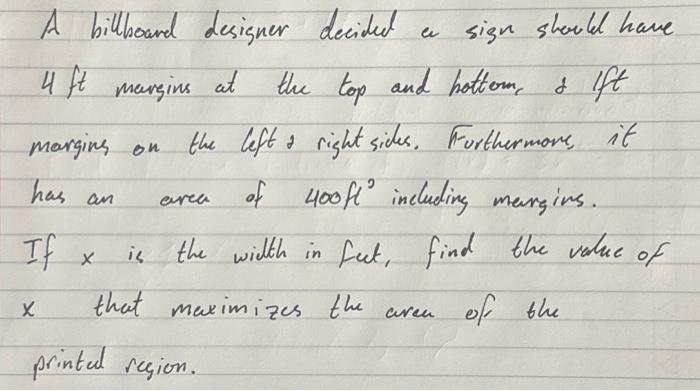 A billboard designer decided a sign should have
4 ft margins at the top and bottom, & 1ft
margins on the left & right sides. Furthermore, it
has an area of 400ft² including margins.
If x is the width in feet, find the value of
x that maximizes the area of the
printed region.